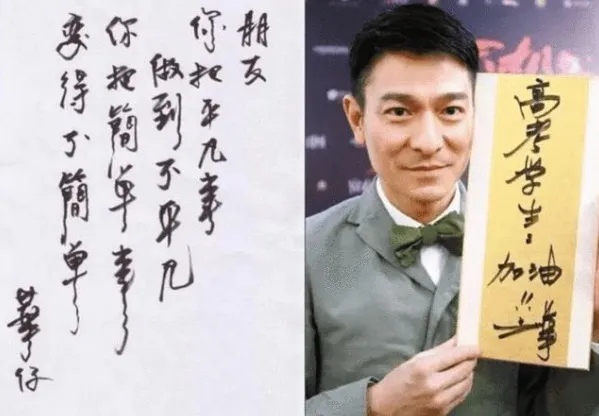 朋友
你把平凡事
做到不平凡
你把簡单事
变得不簡单
華仔
高考学生:
加油!!